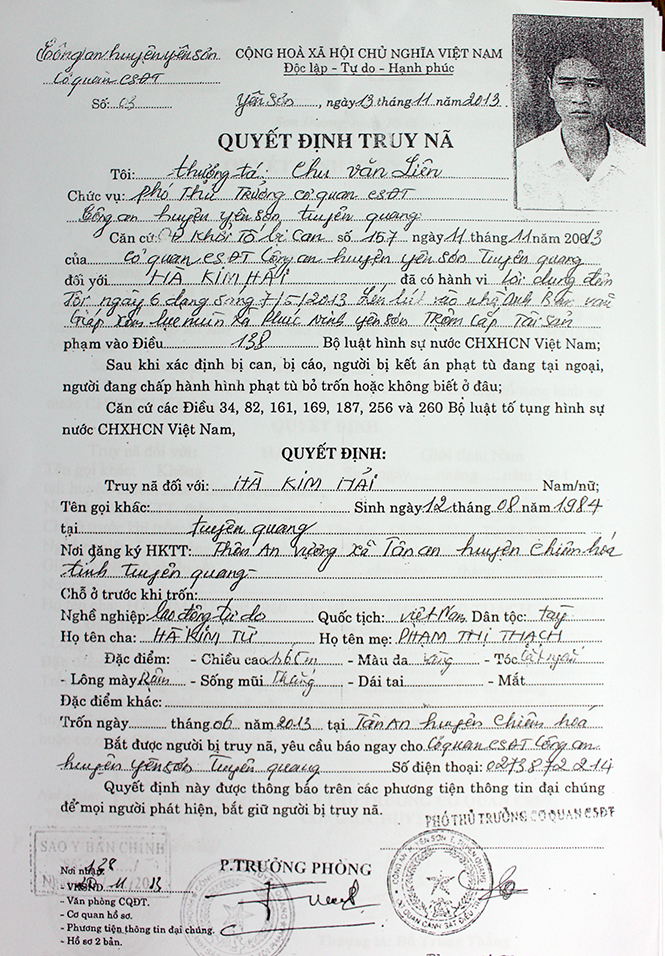 Công an huyện yên sơn
Cơ quan CSĐT
Số: 03
CỘNG HOÀ XÃ HỘI CHỦ NGHĨA VIỆT NAM
Độc lập - Tự do - Hạnh phúc
Yên Sơn, ngày 13 tháng 11 năm 2013
QUYẾT ĐỊNH TRUY NÃ
Tôi: thượng tá: Chu văn Liên
Chức vụ: phó Thủ Trưởng cơ quan CSĐT
Công an huyện yên sơn, tuyên quang
Căn cứ: QĐ Khởi Tố bị Can số 157 ngày 11 tháng 11 năm 20013
của cơ quan CSĐT Công an huyện yên sơn Tuyên quang
đối với HÀ KIM HẢI đã có hành vi lợi dụng đêm
Tối ngày 6 dạng sáng 7/5/2013 Lẻn lút vào nhà Anh văn
Giáp xóm lục mùn xã Phúc Ninh yên sơn Trộm Cắp Tài sản
phạm vào Điều 138 Bộ luật hình sự nước CHXHCN Việt Nam;
Sau khi xác định bị can, bị cáo, người bị kết án phạt tù đang tại ngoại,
người đang chấp hành hình phạt tù bỏ trốn hoặc không biết ở đâu;
Căn cứ các Điều 34, 82, 161, 169, 187, 256 và 260 Bộ luật tố tụng hình sự
nước CHXHCN Việt Nam,
QUYẾT ĐỊNH:
Truy nã đối với: HÀ KIM HẢI Nam/nữ;
Tên gọi khác: Sinh ngày 12 tháng 08 năm 1984
tại tuyên quang
Nơi đăng ký HKTT: Thôn An Vượng xã Tân an huyện Chiêm hóa
tỉnh tuyên quang
Chỗ ở trước khi trốn:
Nghề nghiệp: lao động tự do Quốc tịch: việt Nam Dân tộc: tày
Họ tên cha: HÀ KIM TỪ Họ tên mẹ: PHẠM THỊ THẠCH
Đặc điểm: - Chiều cao 1m65m - Màu da vàng - Tóc cắt ngắn
- Lông mày Rậm - Sống mũi Thẳng - Dái tai - Mắt
Đặc điểm khác:
Trốn ngày tháng 06 năm 2013 tại TÂN AN huyện Chiêm hoá
Bắt được người bị truy nã, yêu cầu báo ngay cho Cơ quan CSĐT Công an
huyện yên sơn Tuyên quang Số điện thoại: 0273872214
Quyết định này được thông báo trên các phương tiện thông tin đại chúng
để mọi người phát hiện, bắt giữ người bị truy nã.
PHÓ THỦ TRƯỞNG CƠ QUAN CSĐT
SAO Y BẢN CHÍNH
P.TRƯỞNG PHÒNG
Nơi nhận: 138
- VKSND 11 13
- Văn phòng CQĐT.
- Cơ quan hồ sơ.
- Phương tiện thông tin đại chúng.
- Hồ sơ 2 bản.